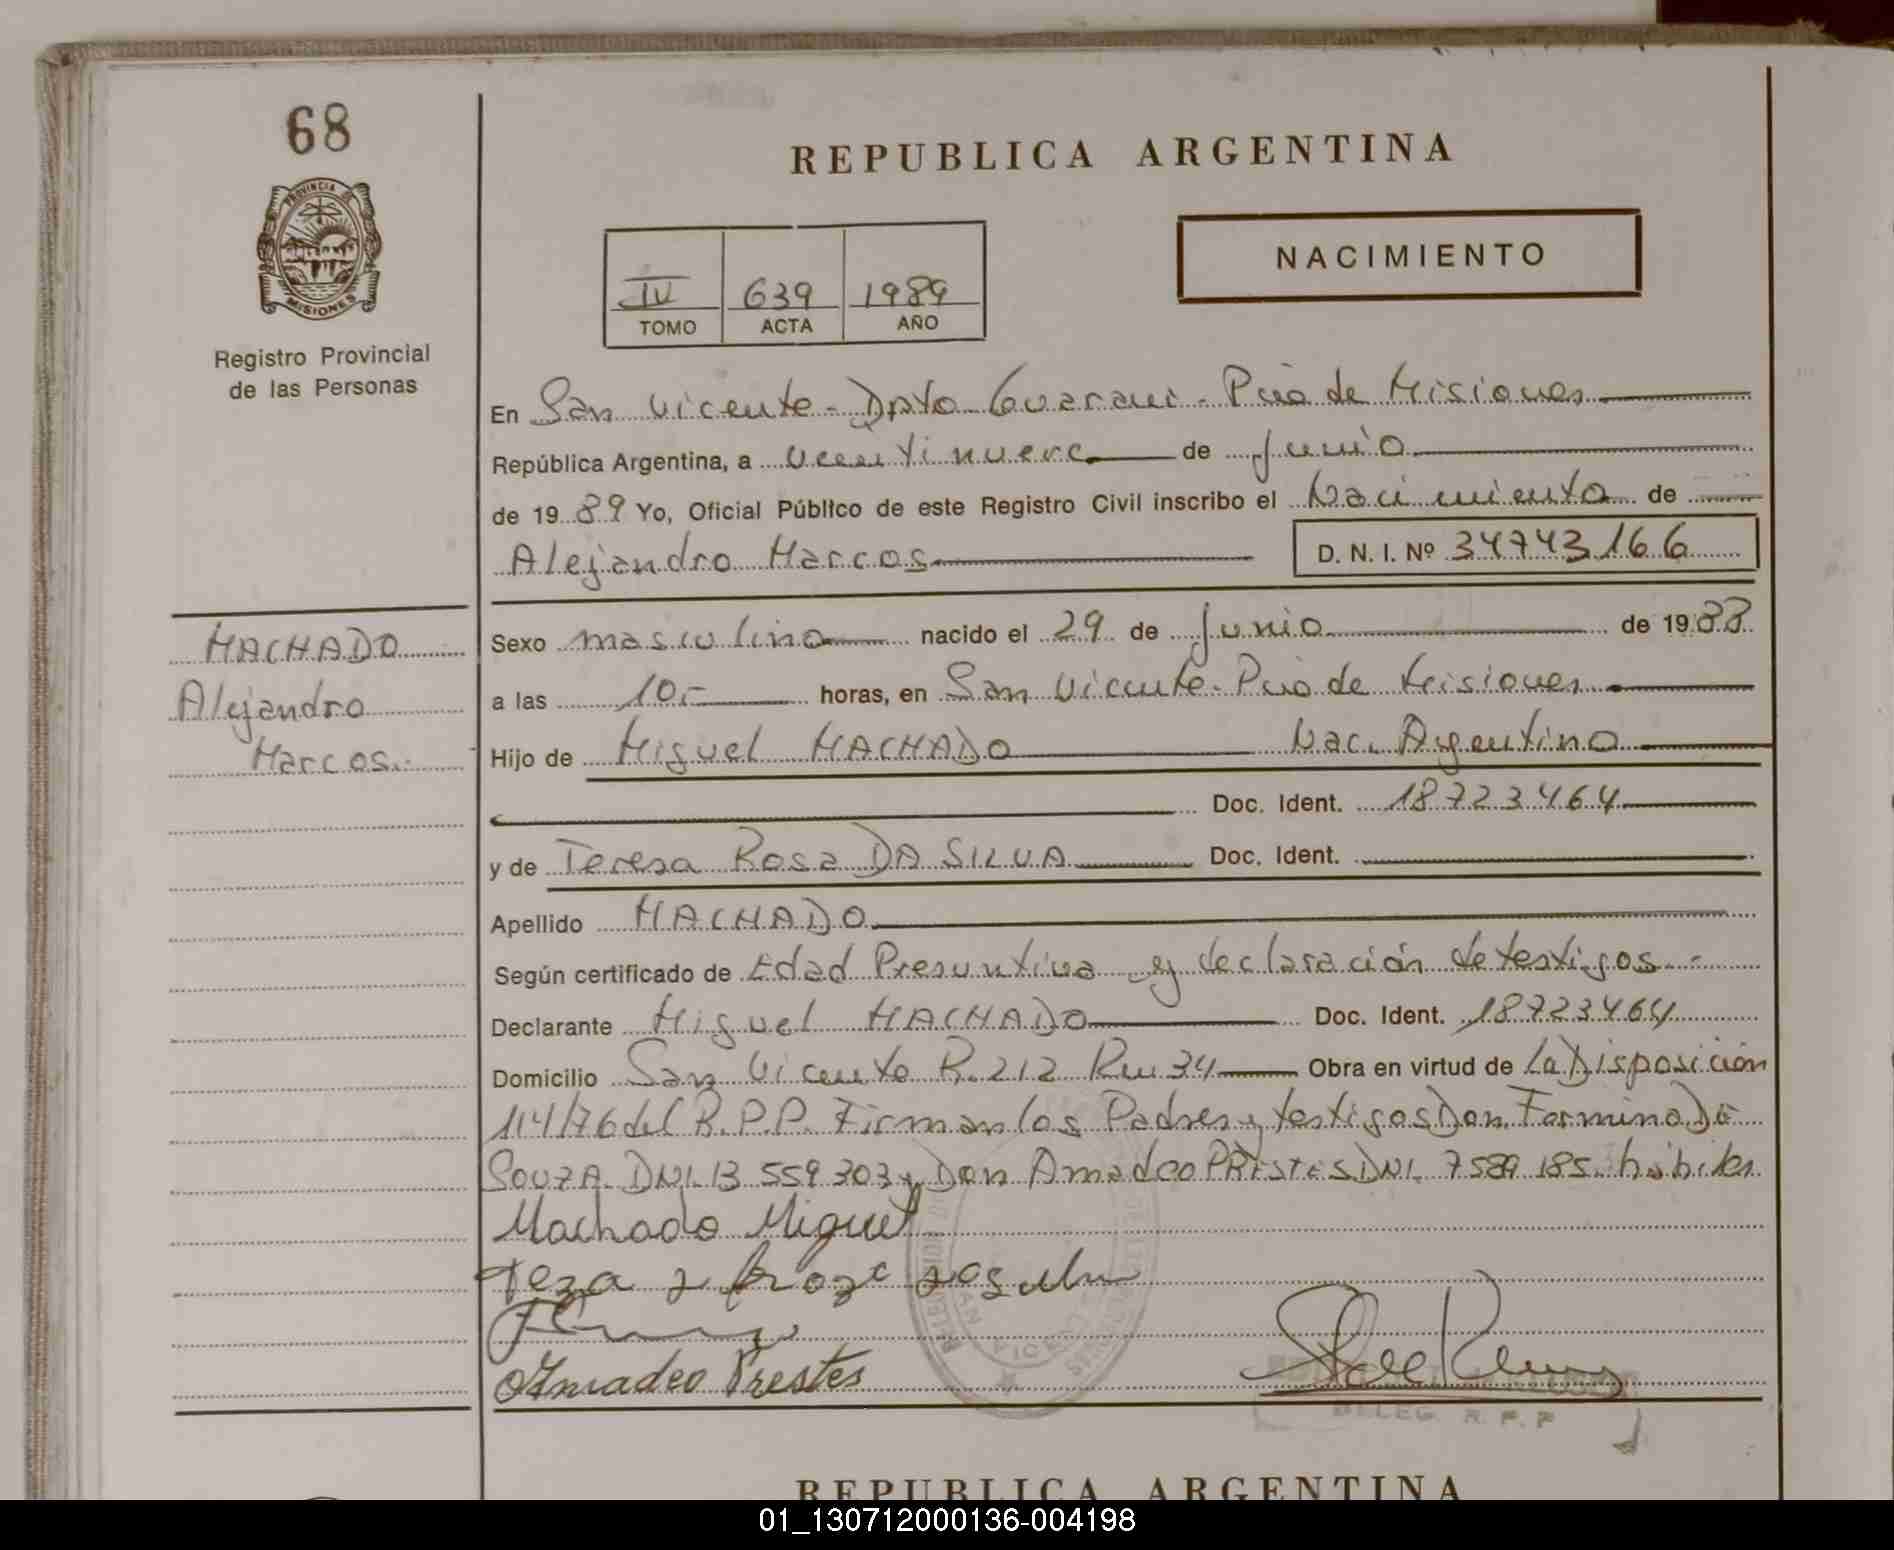 68
PROVINCIA DE
MISIONES
Registro Provincial
de las Personas
REPUBLICA ARGENTINA
IV 639 1989
TOMO ACTA AÑO
NACIMIENTO
En San Vicente - Dpto Guarani - Pcia de Misiones
República Argentina, a veintinueve de junio
de 1989 Yo, Oficial Público de este Registro Civil inscribo el Nacimiento de
Alejandro Marcos D. N. I. Nº 34743166
MACHADO
Alejandro
Marcos.-
Sexo masculino nacido el 29 de junio de 1988
a las 10.- horas, en San Vicente - Pcia de Misiones
Hijo de Miguel MACHADO Nac. Argentino
Doc. Ident. 18723464
y de Teresa Rosa DA SILVA Doc. Ident.
Apellido MACHADO
Según certificado de Edad Presuntiva y declaración de testigos -
Declarante Miguel MACHADO Doc. Ident. 18723464
Domicilio San Vicente R. 212 Km 34 Obra en virtud de la Disposición
114/76 del R.P.P. Firman los Padres y testigos Don Formino DE
SOUZA DNI. 13 559 303 y Don Amadeo PRESTES DNI. 7 589 185 hábiles
Machado Miguel
Amadeo Prestes
SAN VICENTE
DELEG. R. P. P
REPUBLICA ARGENTINA
01_130712000136-004198